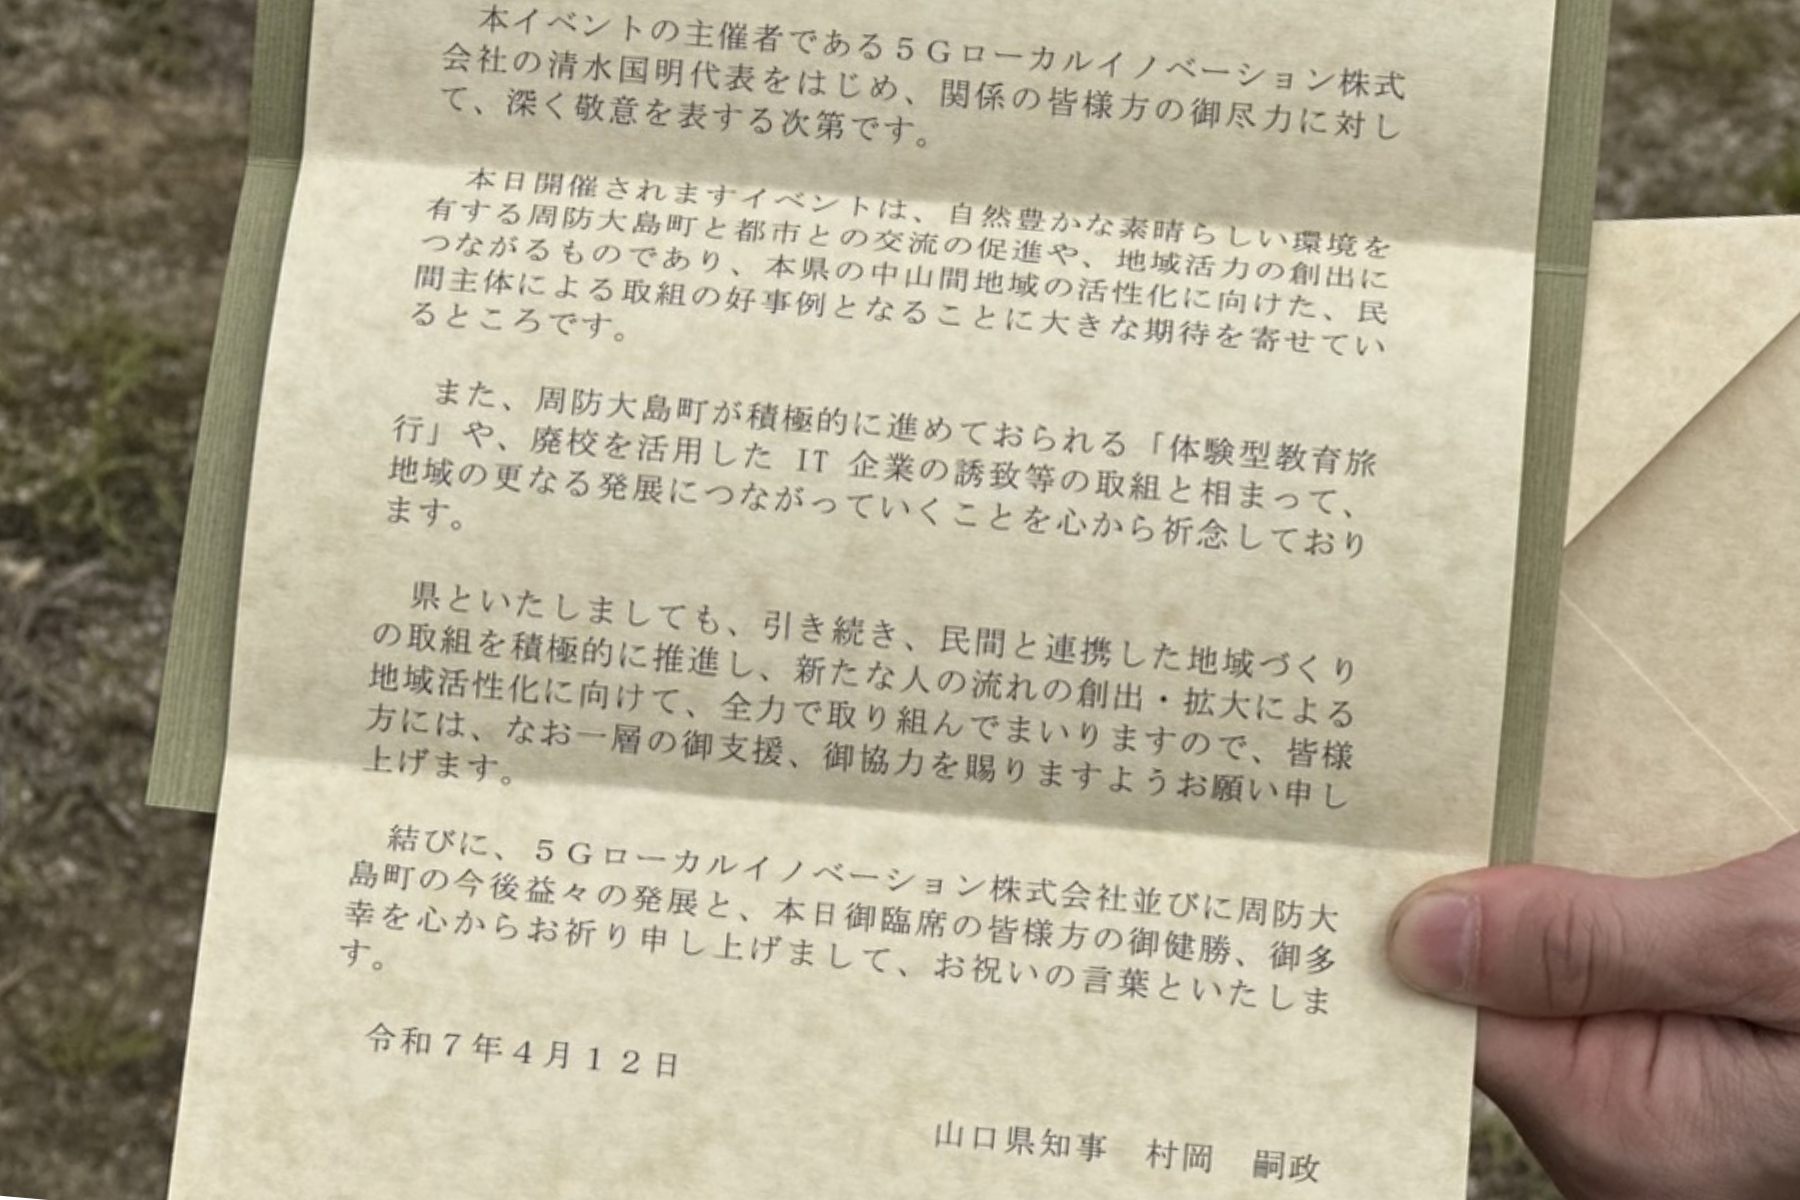 本イベントの主催者である５Ｇローカルイノベーション株式
会社の清水国明代表をはじめ、関係の皆様方の御尽力に対し
て、深く敬意を表する次第です。
本日開催されますイベントは、自然豊かな素晴らしい環境を
有する周防大島町と都市との交流の促進や、地域活力の創出に
つながるものであり、本県の中山間地域の活性化に向けた、民
間主体による取組の好事例となることに大きな期待を寄せてい
るところです。
また、周防大島町が積極的に進めておられる「体験型教育旅
行」や、廃校を活用した IT 企業の誘致等の取組と相まって、
地域の更なる発展につながっていくことを心から祈念しており
ます。
県といたしましても、引き続き、民間と連携した地域づくり
の取組を積極的に推進し、新たな人の流れの創出・拡大による
地域活性化に向けて、全力で取り組んでまいりますので、皆様
方には、なお一層の御支援、御協力を賜りますようお願い申し
上げます。
結びに、５Ｇローカルイノベーション株式会社並びに周防大
島町の今後益々の発展と、本日御臨席の皆様方の御健勝、御多
幸を心からお祈り申し上げまして、お祝いの言葉といたしま
す。
令和７年４月１２日
山口県知事　村岡　嗣政